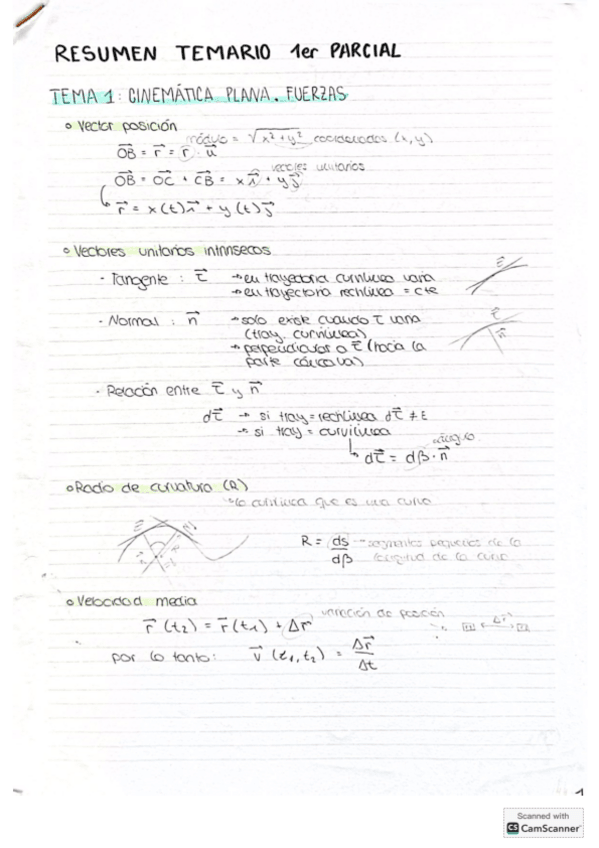 RESUMEN TEMARIO 1er PARCIAL
TEMA 1: CINEMÁTICA PLANA. FUERZAS
o Vector posición
módulo = √x²+y² coordenadas (x,y)
OB = r = r · u
vectores unitarios
OB = OC + CB = x i + y j
r = x(t) i + y(t) j
o Vectores unitarios intrínsecos
- Tangente : τ → en trayectoria curvilínea varía
→ en trayectoria rectilínea = cte
- Normal : n → solo existe cuando τ varía
(tray. curvilínea)
→ perpendicular a τ (hacia la
parte cóncava)
- Relación entre τ y n
dτ → si tray = rectilínea dτ ≠ E
→ si tray = curvilínea
ángulo
dτ = dβ · n
o Radio de curvatura (R)
lo que es una curva
R = ds/dβ → segmentos pequeños de la
longitud de la curva
o Velocidad media
variación de posición
r (t2) = r (t1) + Δr
Δr
por lo tanto: v (t1, t2) = Δr/Δt
1
Scanned with
CS CamScanner